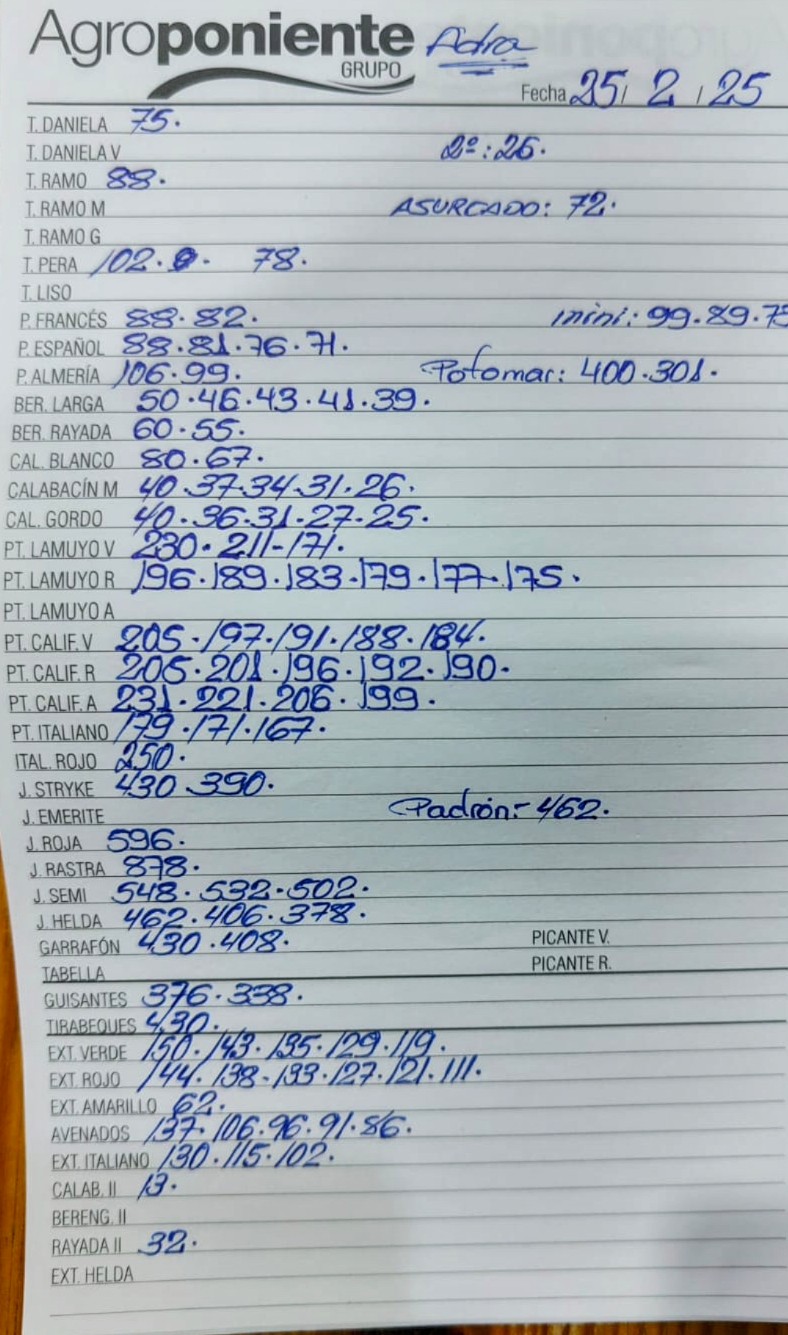 Agroponiente Adra
GRUPO
Fecha 25/ 2 / 25
T. DANIELA 75.
T. DANIELA V 2º: 26.
T. RAMO 88.
T. RAMO M ASURCADO: 72.
T. RAMO G
T. PERA 102. 78.
T. LISO
P. FRANCÉS 88. 82. mini: 99. 89. 75
P. ESPAÑOL 88. 81. 76. 71.
P. ALMERÍA 106. 99. Potomar: 400. 301.
BER. LARGA 50. 46. 43. 41. 39.
BER. RAYADA 60. 55.
CAL. BLANCO 80. 67.
CALABACÍN M 40. 37. 34. 31. 26.
CAL. GORDO 40. 36. 31. 27. 25.
PT. LAMUYO V 230. 211-171.
PT. LAMUYO R 196. 189. 183. 179. 177. 175.
PT. LAMUYO A
PT. CALIF. V 205. 197. 191. 188. 184.
PT. CALIF. R 205. 201. 196. 192. 190.
PT. CALIF. A 231. 221. 206. 199.
PT. ITALIANO 179. 171. 167.
ITAL. ROJO 250.
J. STRYKE 430. 390.
J. EMERITE Padrón: 462.
J. ROJA 596.
J. RASTRA 878.
J. SEMI 548. 532. 502.
J. HELDA 462. 406. 378.
GARRAFÓN 430. 408. PICANTE V.
PICANTE R.
TABELLA
GUISANTES 376. 338.
TIRABEQUES 430.
EXT. VERDE 150. 143. 135. 129. 119.
EXT. ROJO 144. 138. 133. 127. 121. 111.
EXT. AMARILLO 62.
AVENADOS 137. 106. 96. 91. 86.
EXT. ITALIANO 130. 115. 102.
CALAB. II 13.
BERENG. II
RAYADA II 32.
EXT. HELDA